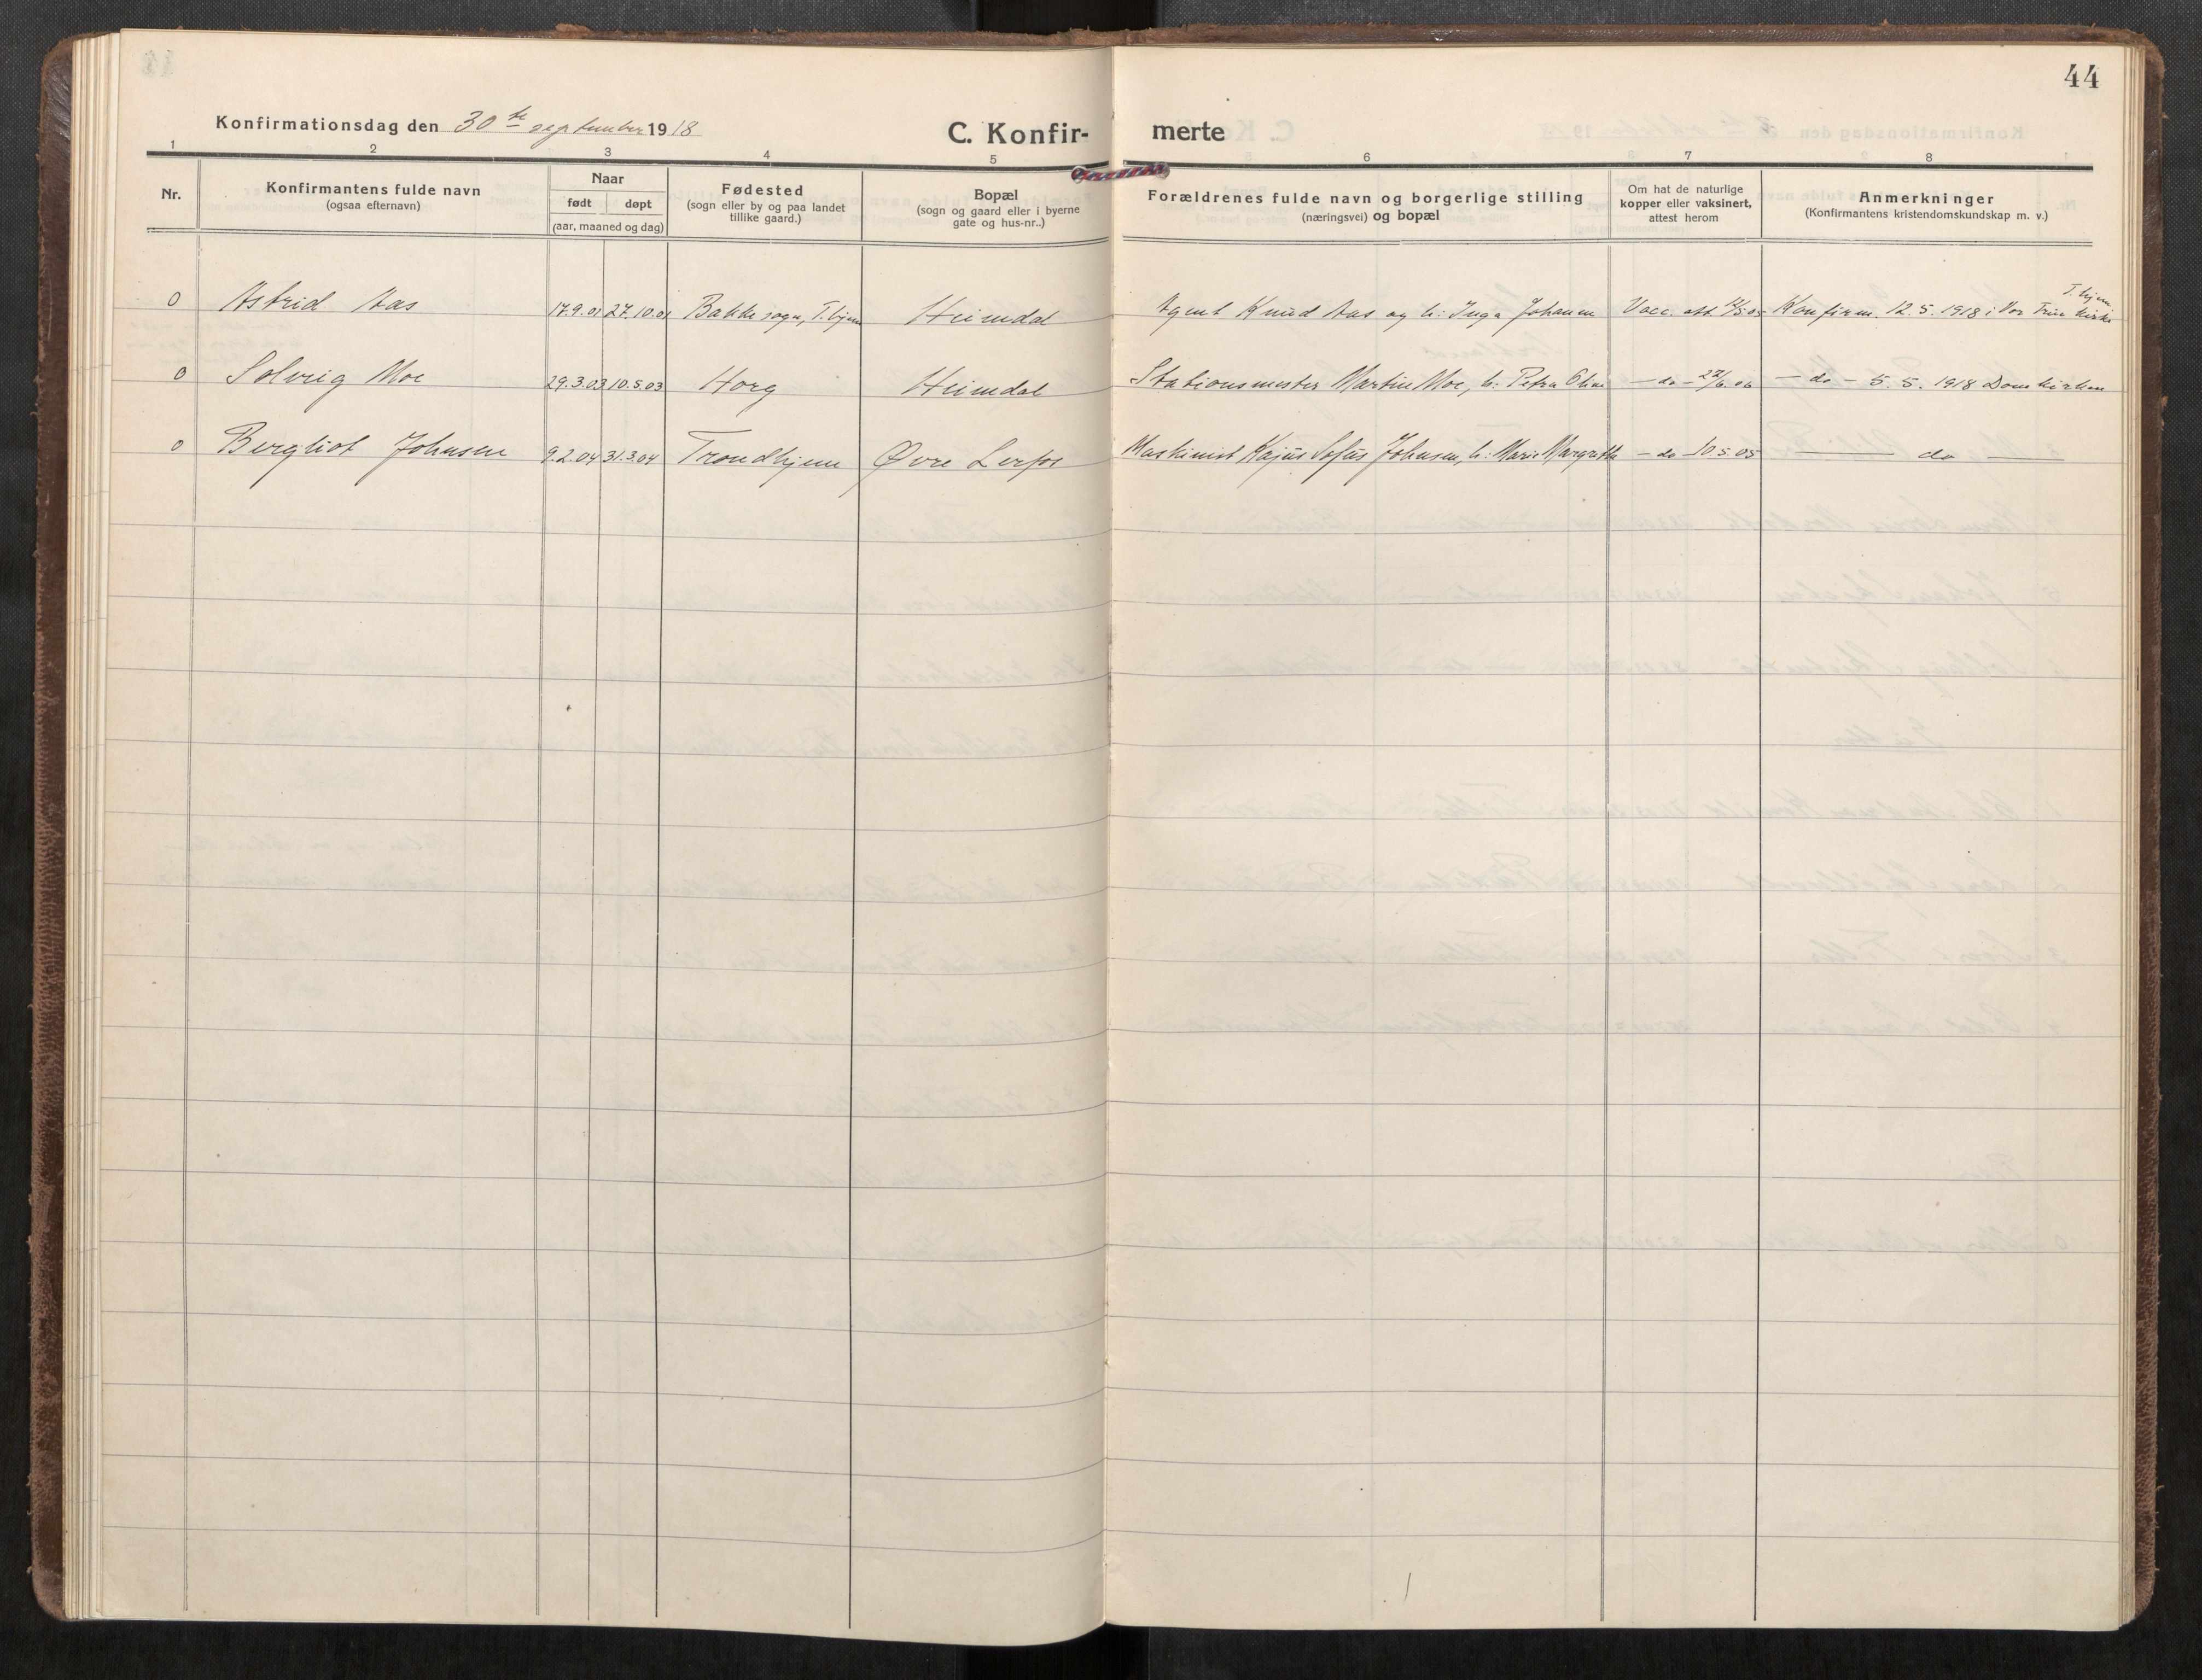 44
Konfirmationsdag den 30te september 1918
C. Konfir- merte
1 2 3 4 5 6 7 8
Nr.
Konfirmantens fulde navn
(ogsaa efternavn)
Naar
født døpt
(aar, maaned og dag)
Fødested
(sogn eller by og paa landet
tillike gaard.)
Bopæl
(sogn og gaard eller i byerne
gate og hus-nr..)
Forældrenes fulde navn og borgerlige stilling
(næringsvei) og bopæl
Om hat de naturlige
kopper eller vaksinert,
attest herom
Anmerkninger
(Konfirmantens kristendomskundskap m. v.)
0 Astrid Aas 17.9.01 27.10.01 Bakke sogn, T.hjem Heimdal Agent Knud Aas og h: Inga Johanne Vacc. att. Konfirm. 12.5.1918 i Vor Frue kirke T.hjem
0 Solveig Moe 29.3.03 10.5.03 Horg Heimdal Stationsmester Martin Moe, h: Petra Oline - do - 27/6.06 - do - 5.5.1918 Domkirken
0 Bergliot Johnsen 9.2.04 31.3.04 Trondhjem Øvre Lerfos Maskinist Kajus Sofus Johnsen, h: Marie Margrethe - do - 10.5.05 — do —